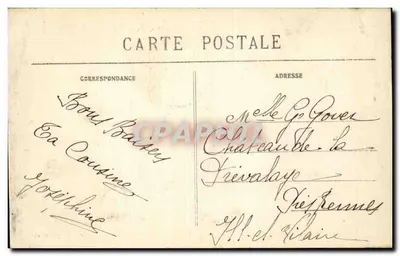 CARTE POSTALE
CORRESPONDANCE
ADRESSE
Bons Baisers
Ta Cousine
Joséphine
Melle G. Gover
Chateau de la
Prévalaye
Près Rennes
Ill-et-Vilaine
CPARAMA